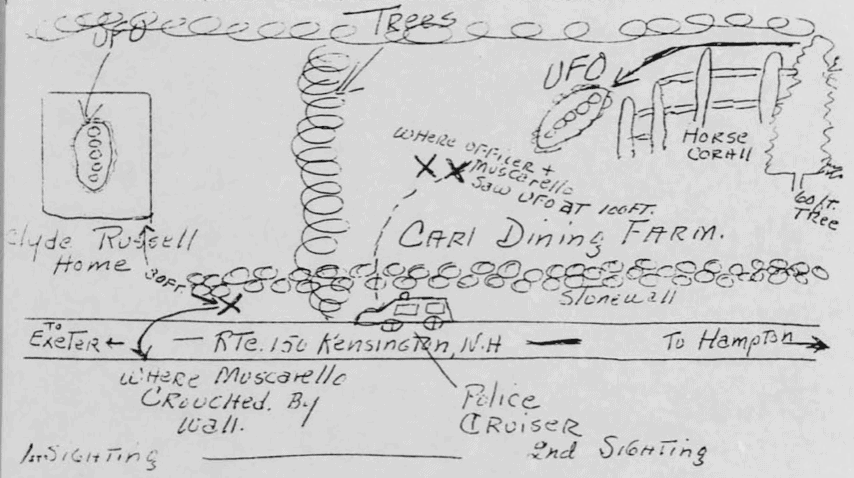 UFO
Trees
UFO
Horse
Corall
60 ft.
Tree
Where officer +
Muscarello
Saw UFO at 100 FT.
Clyde Russell
Home
30 FT.
Carl Dining Farm.
Stonewall
To
Exeter
Rte. 150 Kensington, N.H
To Hampton
Where Muscarello
Crouched By
Wall.
Police
Cruiser
1st Sighting
2nd Sighting